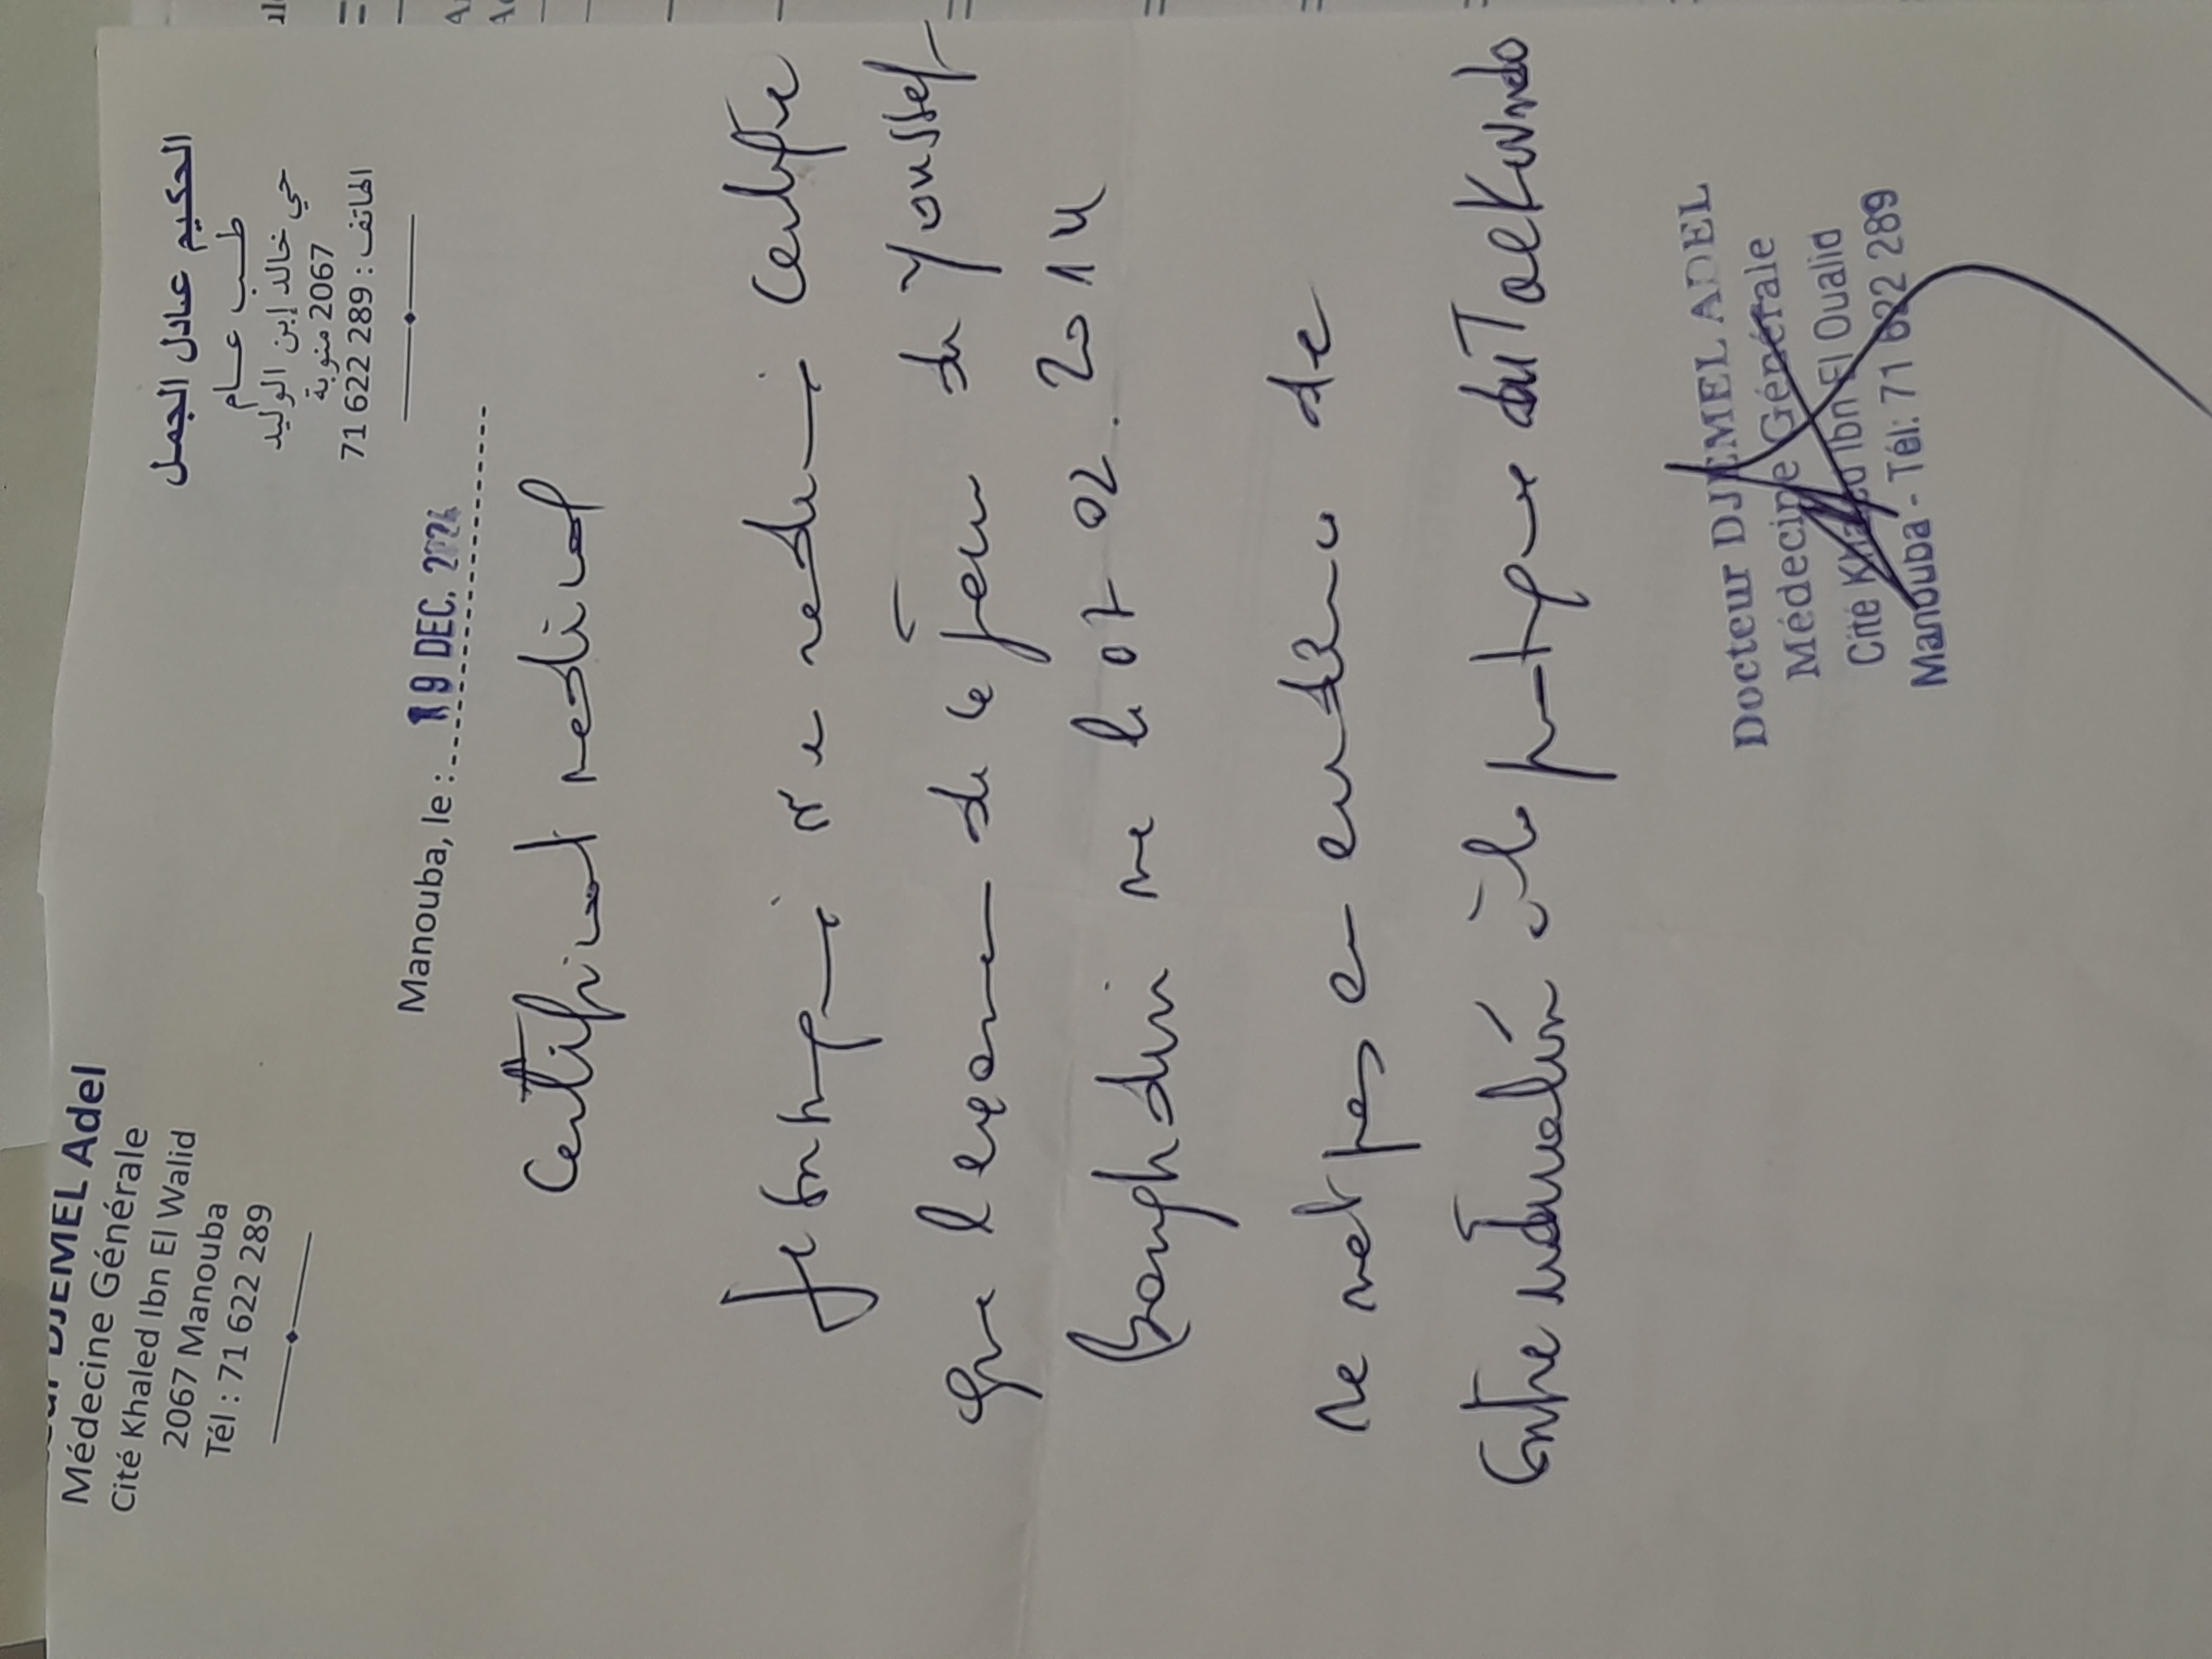 DJEMEL Adel
Médecine Générale
Cité Khaled Ibn El Walid
2067 Manouba
Tél : 71 622 289
الحكيم عادل الجمل
طب عام
حي خالد إبن الوليد
2067 منوبة
الهاتف : 289 622 71
Manouba, le : 19 DEC. 2024
Certificat médical
Je certifie
que l'examen de ce jour du Youssef
né le 02. 2014
ne met pas en évidence de
contre indication à la pratique du Taekwondo
Docteur DJEMEL ADEL
Médecine Générale
Cité Khaled Ibn El Oualid
Manouba - Tél: 71 622 289